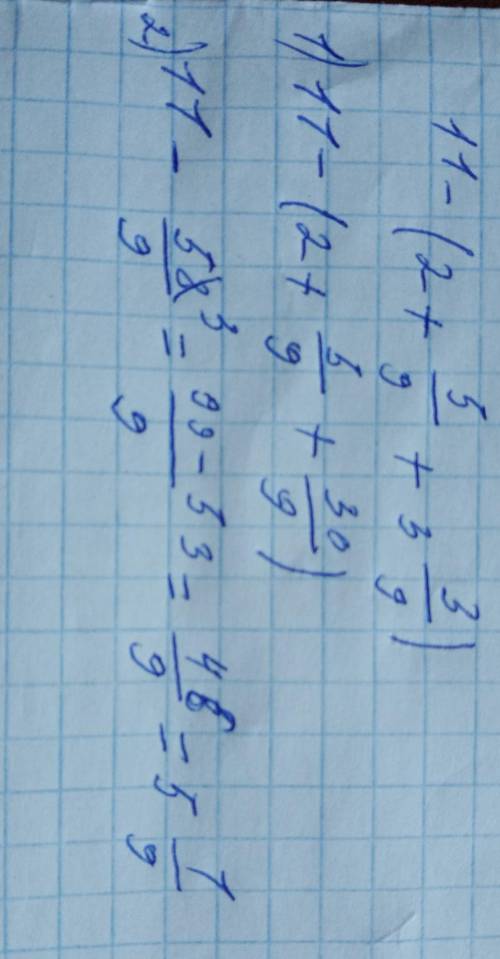 11 - (2 + 5/9 + 3 3/9)
1) 11 - (2 + 5/9 + 30/9)
2) 11 - 53/9 = 99 - 53/9 = 46/9 = 5 1/9